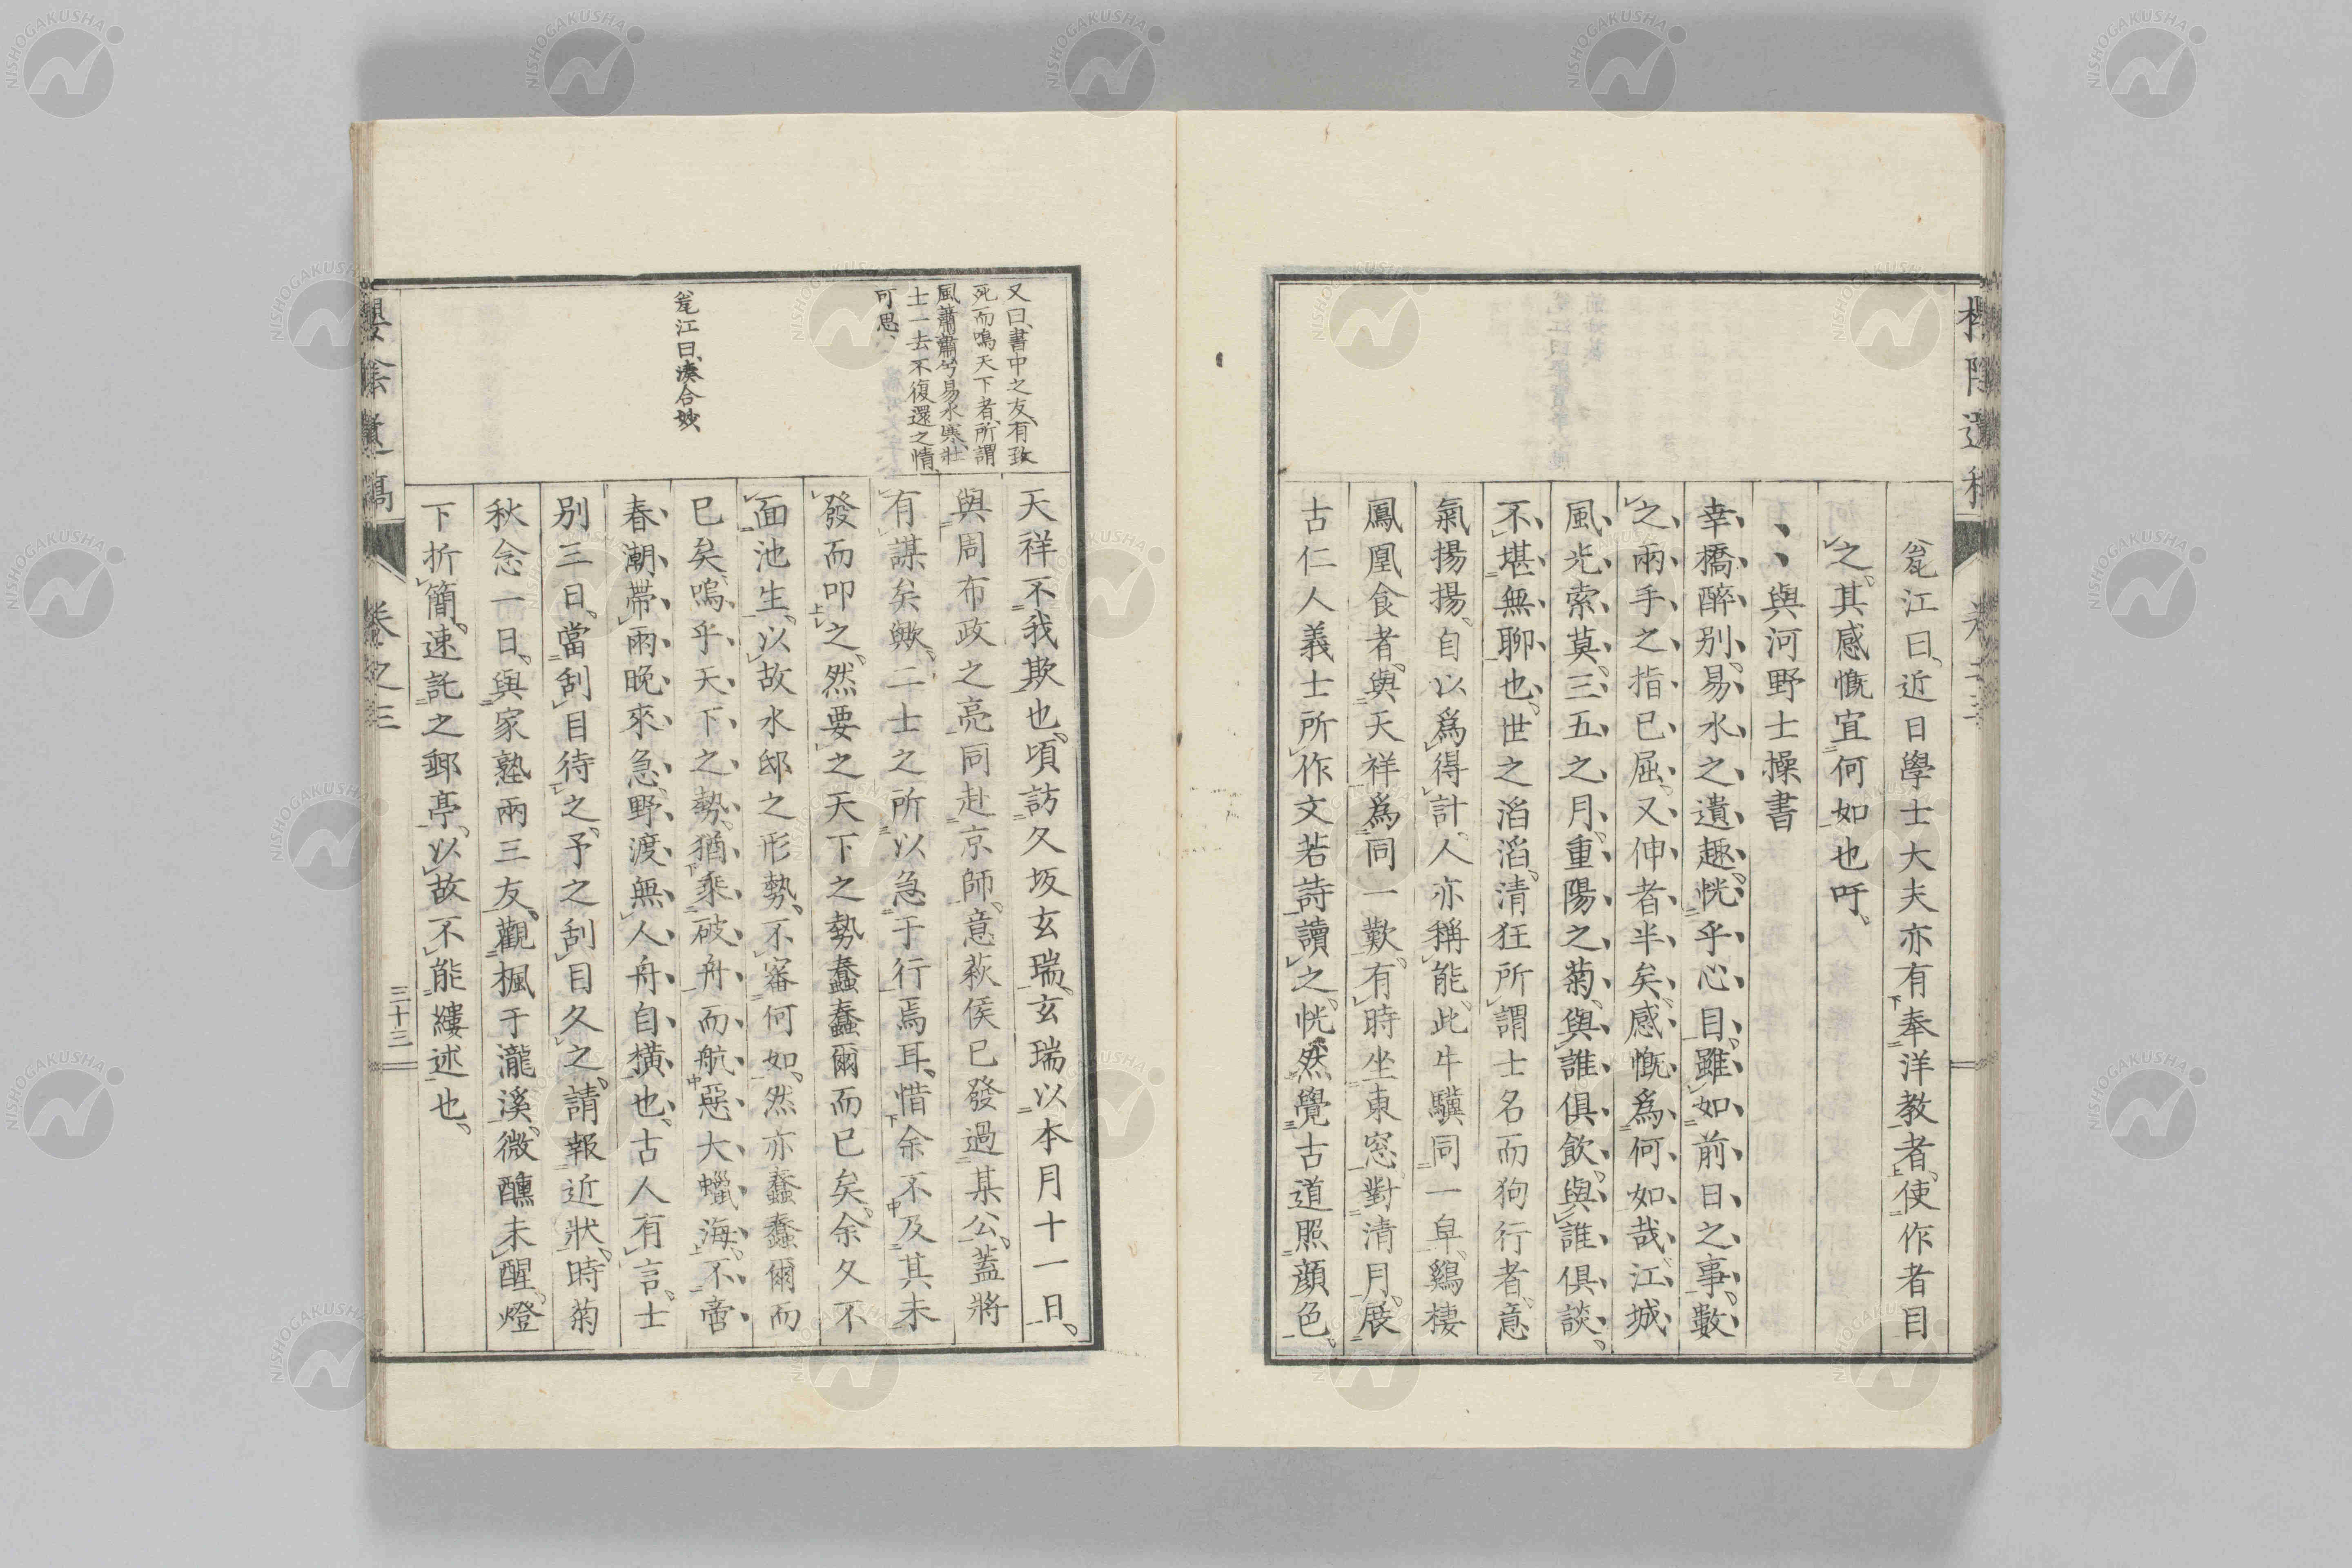 甕江曰、近日學士大夫亦有奉洋教者、使作者目
之、其感慨宜何如也吁、
與河野士操書
幸橋醉別、易水之遺趣、恍乎心目、雖如前日之事、數
之兩手之指已屈、又伸者半矣、感慨爲何如哉、江城
風光索莫、三五之月、重陽之菊、與誰俱飲、與誰俱談、
不堪無聊也、世之滔滔、清狂所謂士名而狗行者、意
氣揚揚、自以爲得計、人亦稱能、此牛驥同一皁、鷄棲
鳳凰食者、與天祥爲同一歎、有時坐東窓對清月、展
古仁人義士所作文若詩讀之、恍然覺古道照顔色、
卷之三
又曰、書中之友、有致
死而鳴天下者、所謂
風蕭蕭兮易水寒、壯
士一去不復還之情、
可思、
甕江曰、湊合妙、
天祥不我欺也、頃訪久坂玄瑞、玄瑞以本月十一日、
與周布政之亮同赴京師、意萩侯已發過某公、蓋將
有謀矣歟、二士之所以急于行焉耳、惜余不及其未
發而叩之、然要之天下之勢蠢蠢爾而已矣、余久不
面池生、以故水邸之形勢、不審何如、然亦蠢蠢爾而
已矣、嗚乎天下之勢、猶乘破舟而航惡大蠟海、不啻
春潮帶雨晚來急、野渡無人舟自橫也、古人有言、士
別三日、當刮目待之、予之刮目久之、請報近狀、時菊
秋念一日、與家塾兩三友、觀楓于瀧溪、微醺未醒、燈
下折簡、速託之郵亭、以故不能縷述也、
遺稿
卷之三
三十三